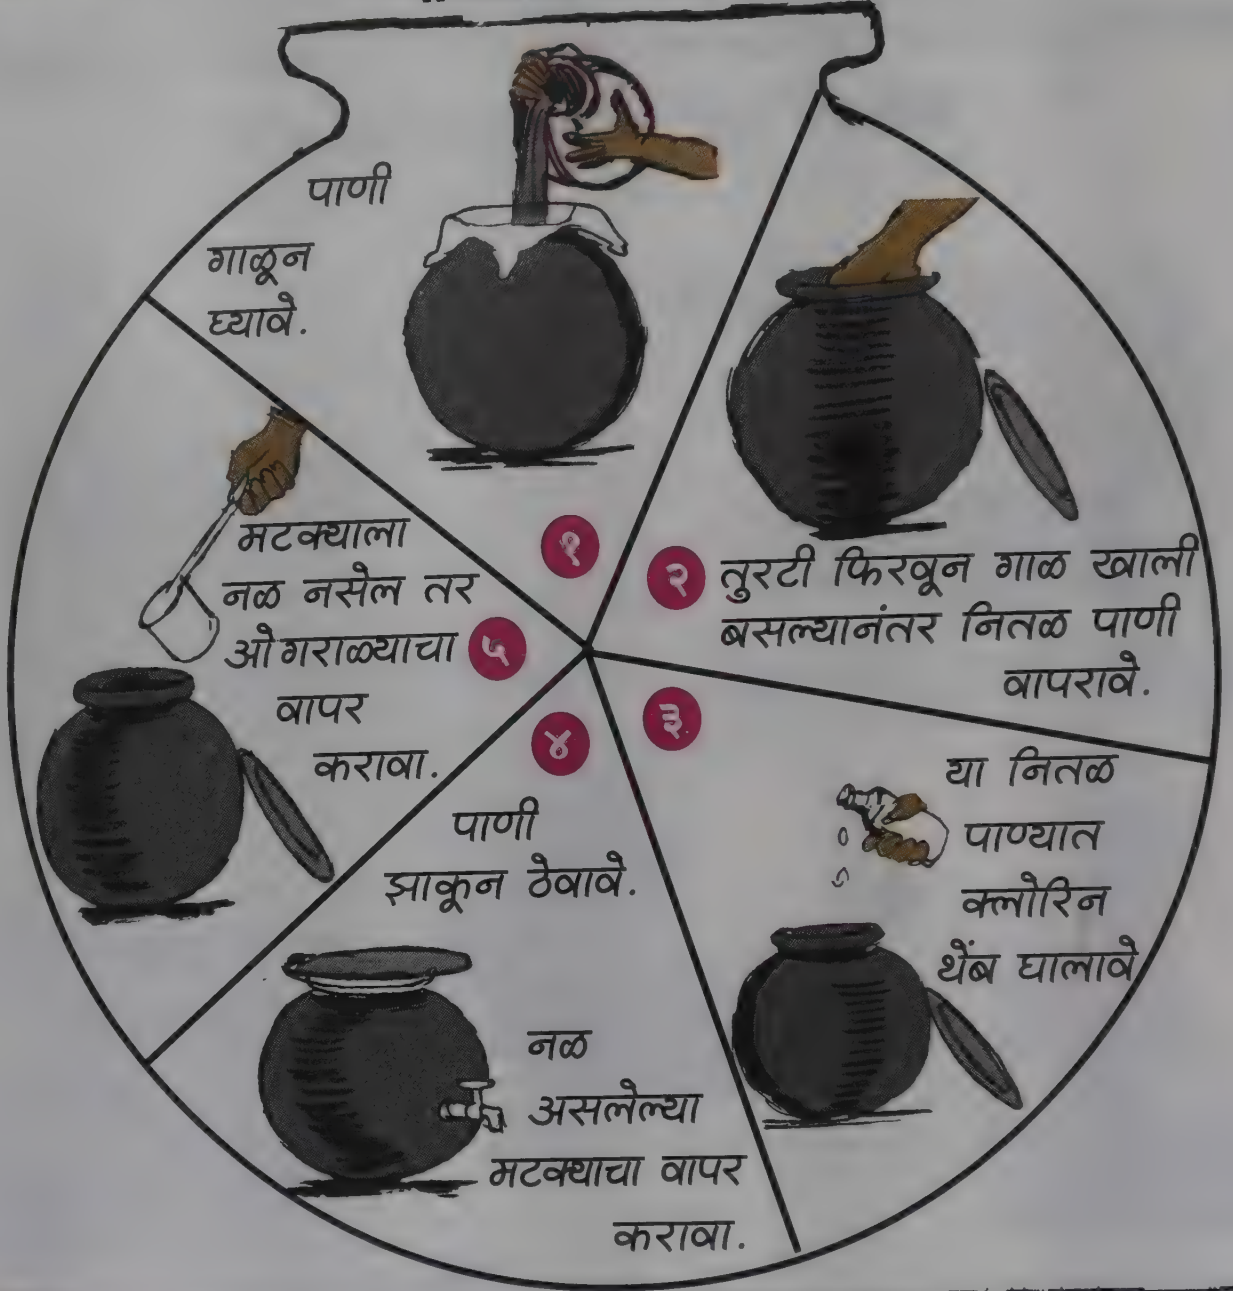 पाणी
गाळून
घ्यावे.
१
२
तुरटी फिरवून गाळ खाली
बसल्यानंतर नितळ पाणी
वापरावे.
३
या नितळ
पाण्यात
क्लोरिन
थेंब घालावे
४
पाणी
झाकून ठेवावे.
नळ
असलेल्या
मटक्याचा वापर
करावा.
५
मटक्याला
नळ नसेल तर
ओगराळ्याचा
वापर
करावा.